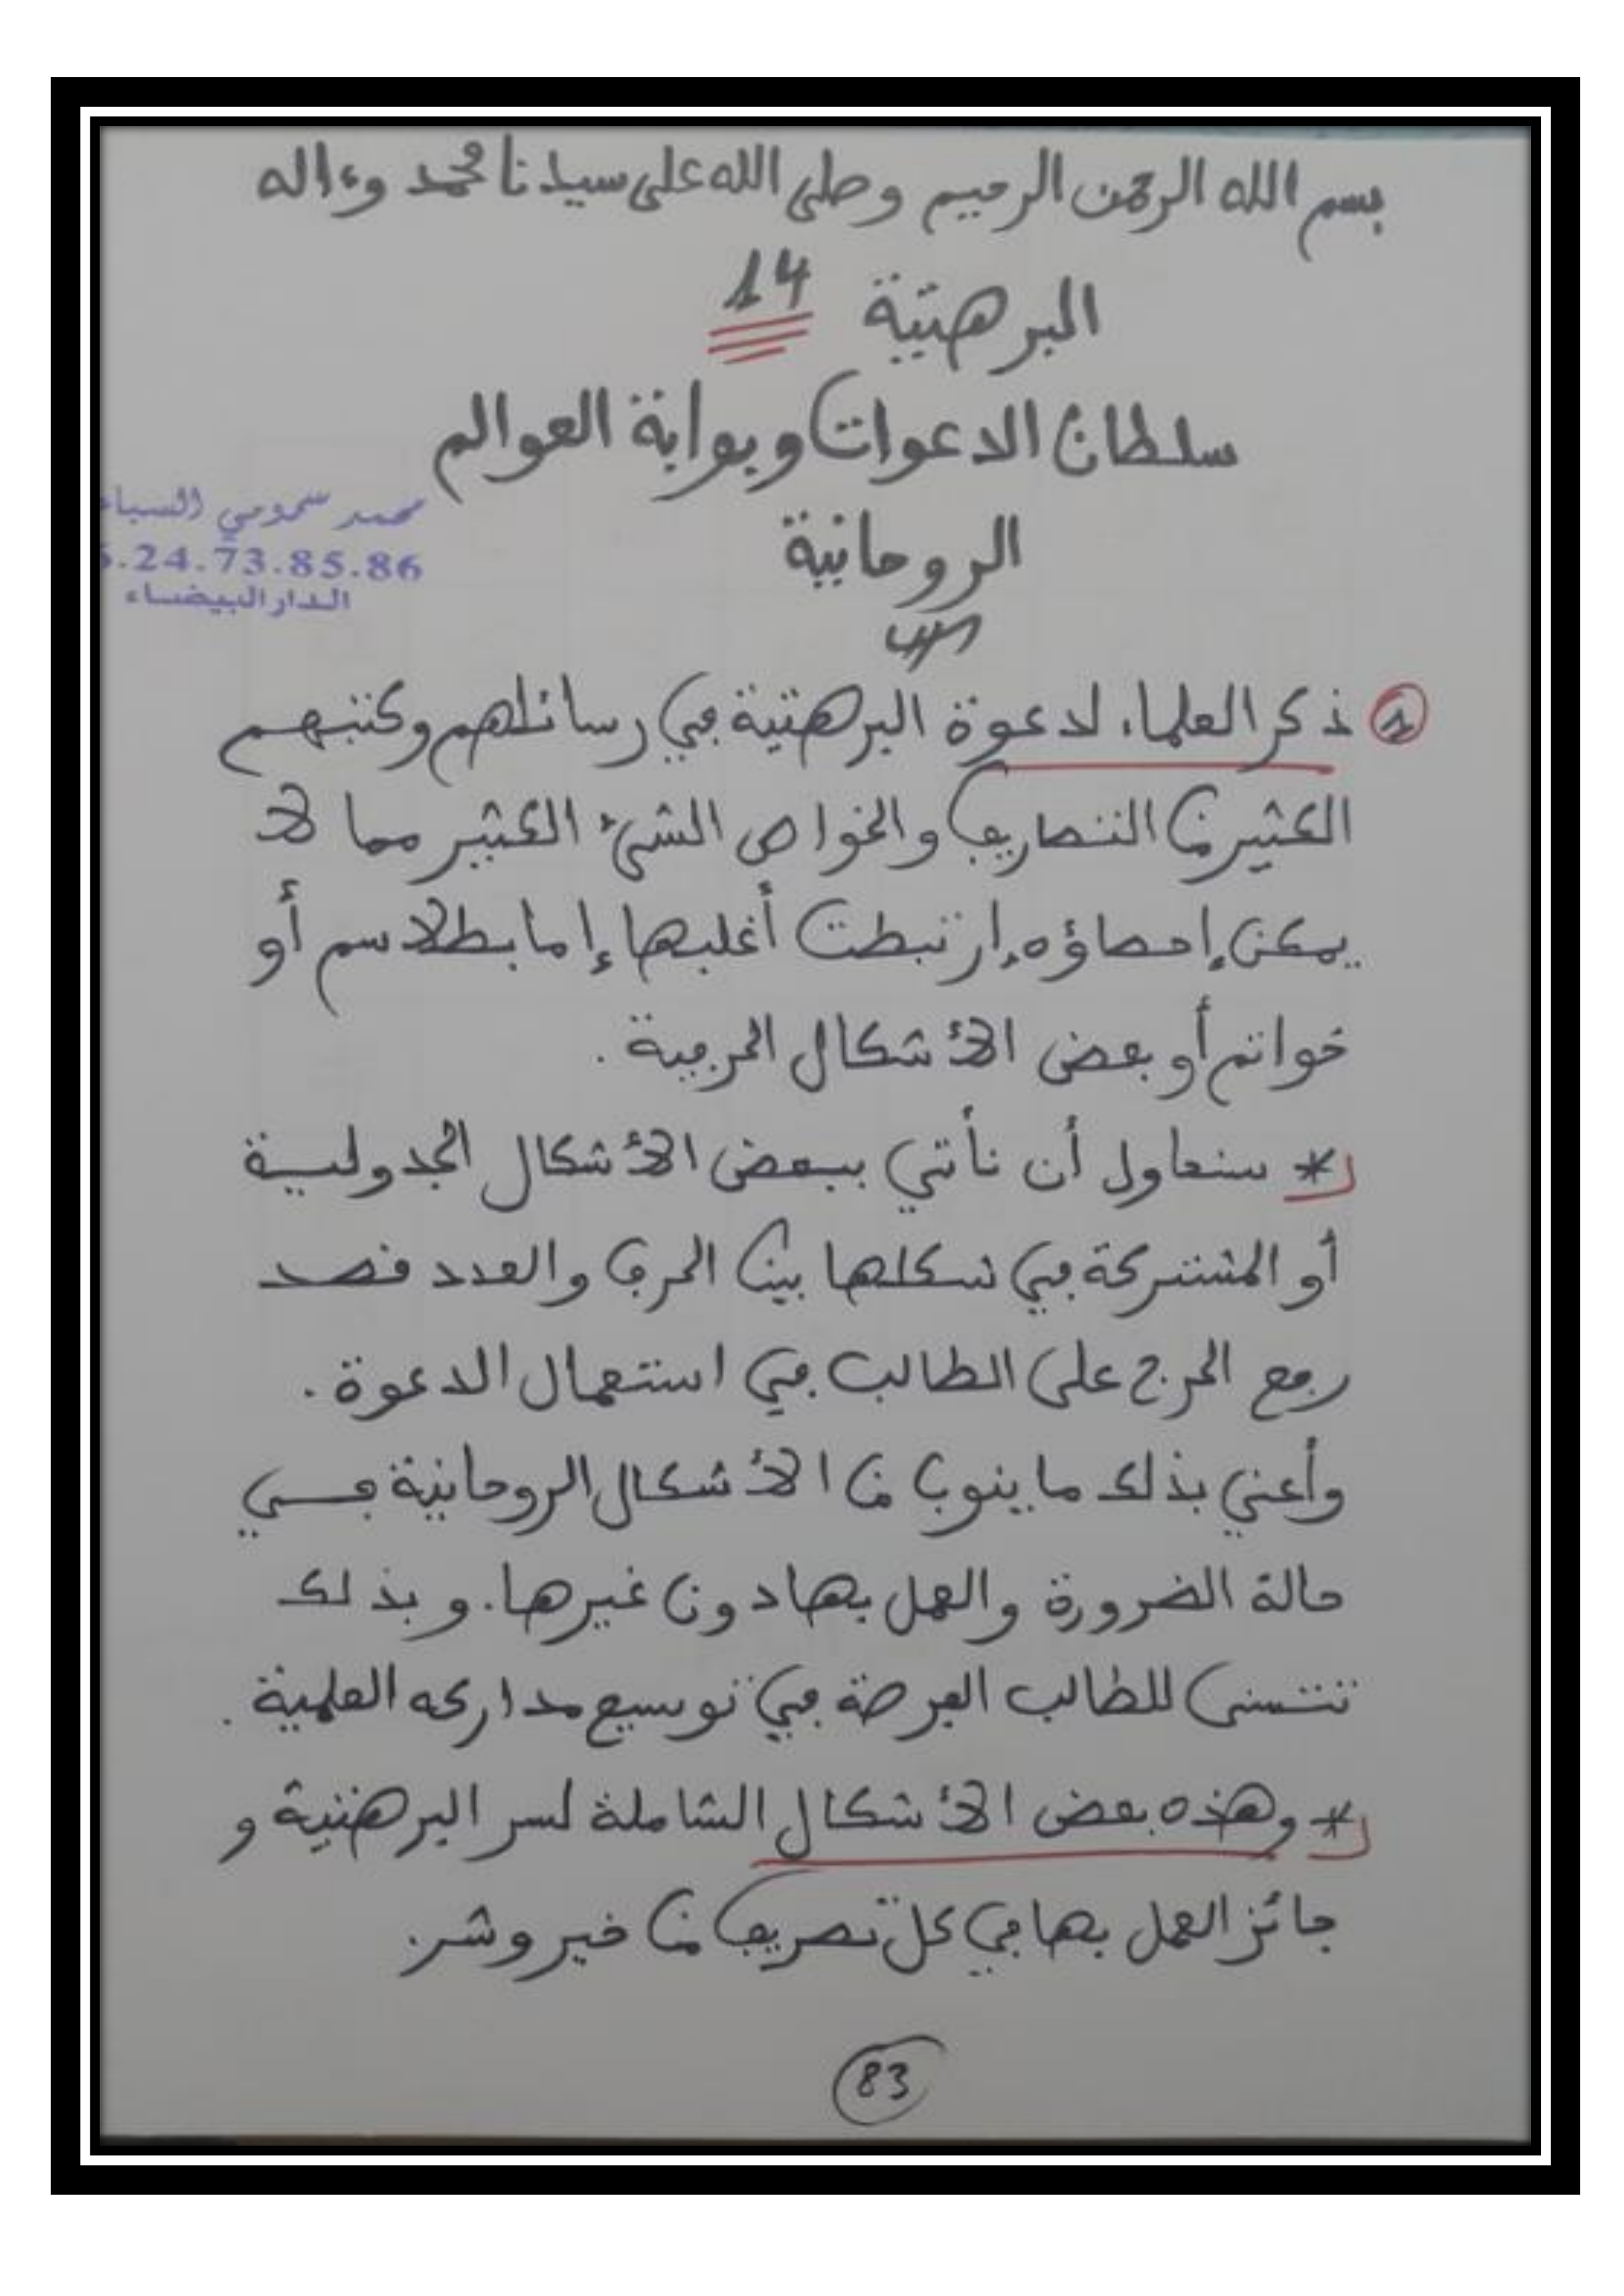 بسم الله الرحمن الرحيم وصلى الله على سيدنا محمد وءاله
البرهتية 14
سلطان الدعوات وبوابة العوالم
الروحانية
محمد سمومي السبا
.24.73.85.86
الدار البيضاء
1 ذكر العلماء لدعوة البرهتية في رسائلهم وكتبهم
الكثير من التصاريف والخواص الشيء الكثير مما لا
يمكن إحصاؤه، ارتبطت أغلبها إما بطلاسم أو
خواتم أو بعض الأشكال الحرفية.
* سنحاول أن نأتي ببعض الأشكال الجدولية
أو المشتركة في شكلها بين الحرف والعدد قصد
رفع الحرج على الطالب في استعمال الدعوة.
وأعني بذلك ما ينوب من الأشكال الروحانية في
حالة الضرورة والعمل بها دون غيرها. وبذلك
تتسنى للطالب الفرصة في توسيع مداركه العلمية.
* وهذه بعض الأشكال الشاملة لسر البرهتية و
جائز العمل بها في كل تصريف من خير وشر.
83